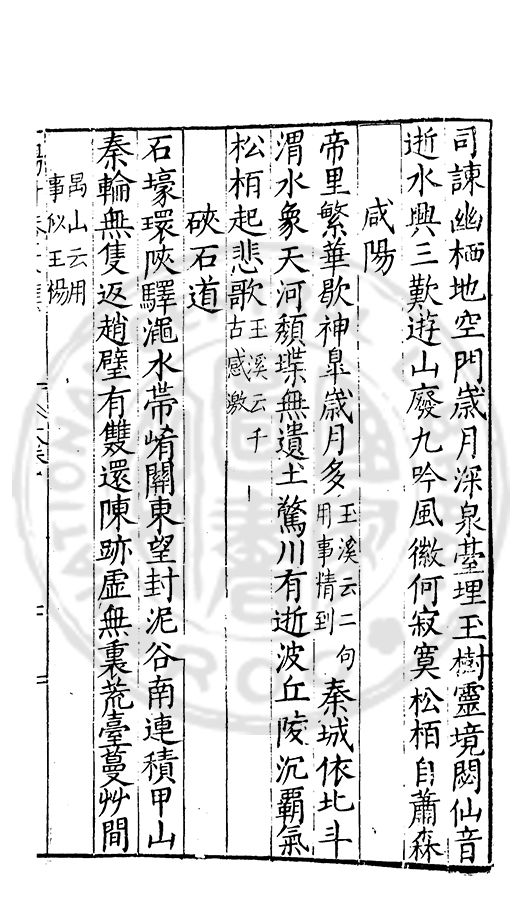 司諫幽栖地空門歲月深泉臺埋玉樹靈境閟仙音
逝水興三歎遊山廢九吟風徽何寂寞松栢自蕭森
咸陽
帝里繁華歇神臯歲月多玉溪云二句用事情到秦城依北斗
渭水象天河頹堞無遺土驚川有逝波丘陵沉覇氣
松栢起悲歌玉溪云千古感激
硤石道
石壕環陜驛澠水帶崤關東望封泥谷南連積甲山
秦輪無隻返趙璧有雙還陳跡虛無裏荒臺蔓艸間
禺山云用事似王楊